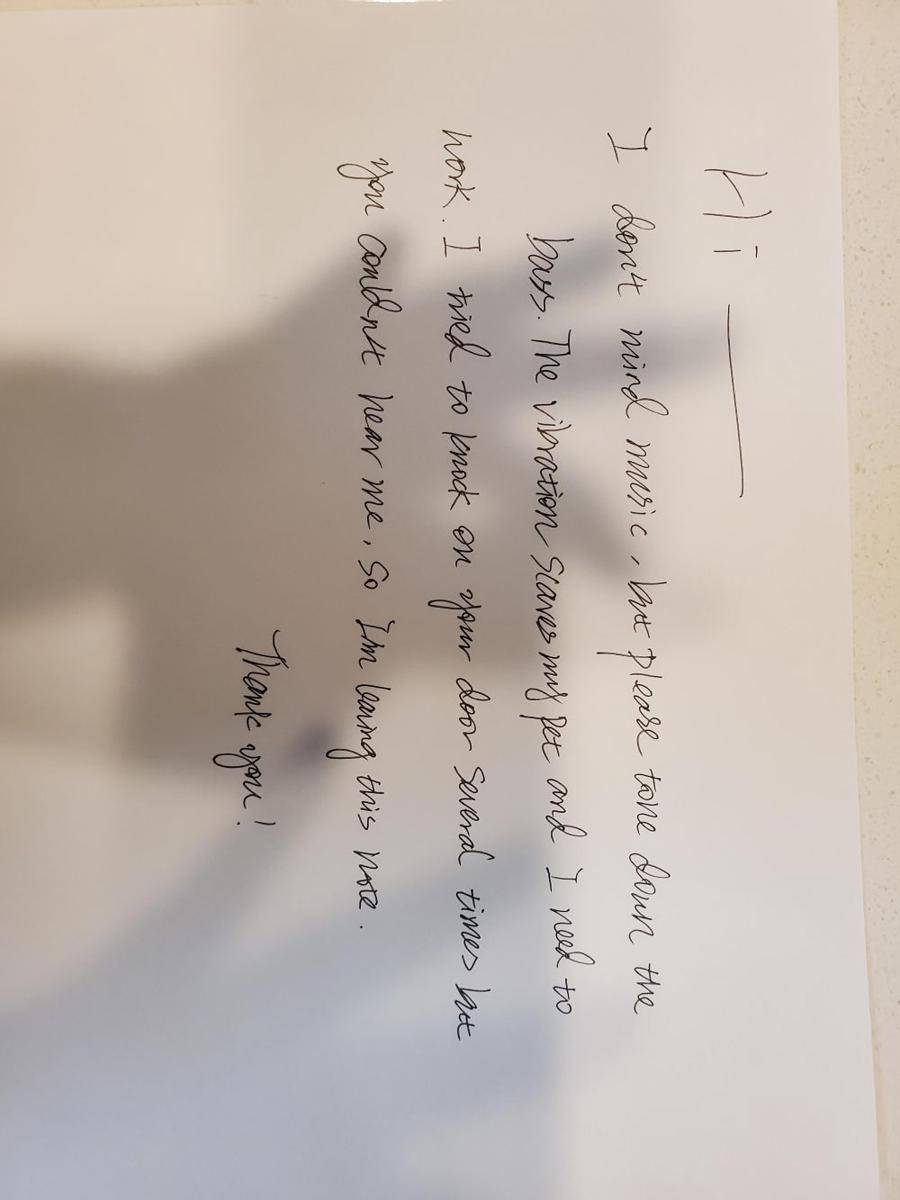 Hi —
I don't mind music, but please tone down the
bass. The vibration scares my pet and I need to
work. I tried to knock on your door several times but
you couldn't hear me, so I'm leaving this note.
Thank you!